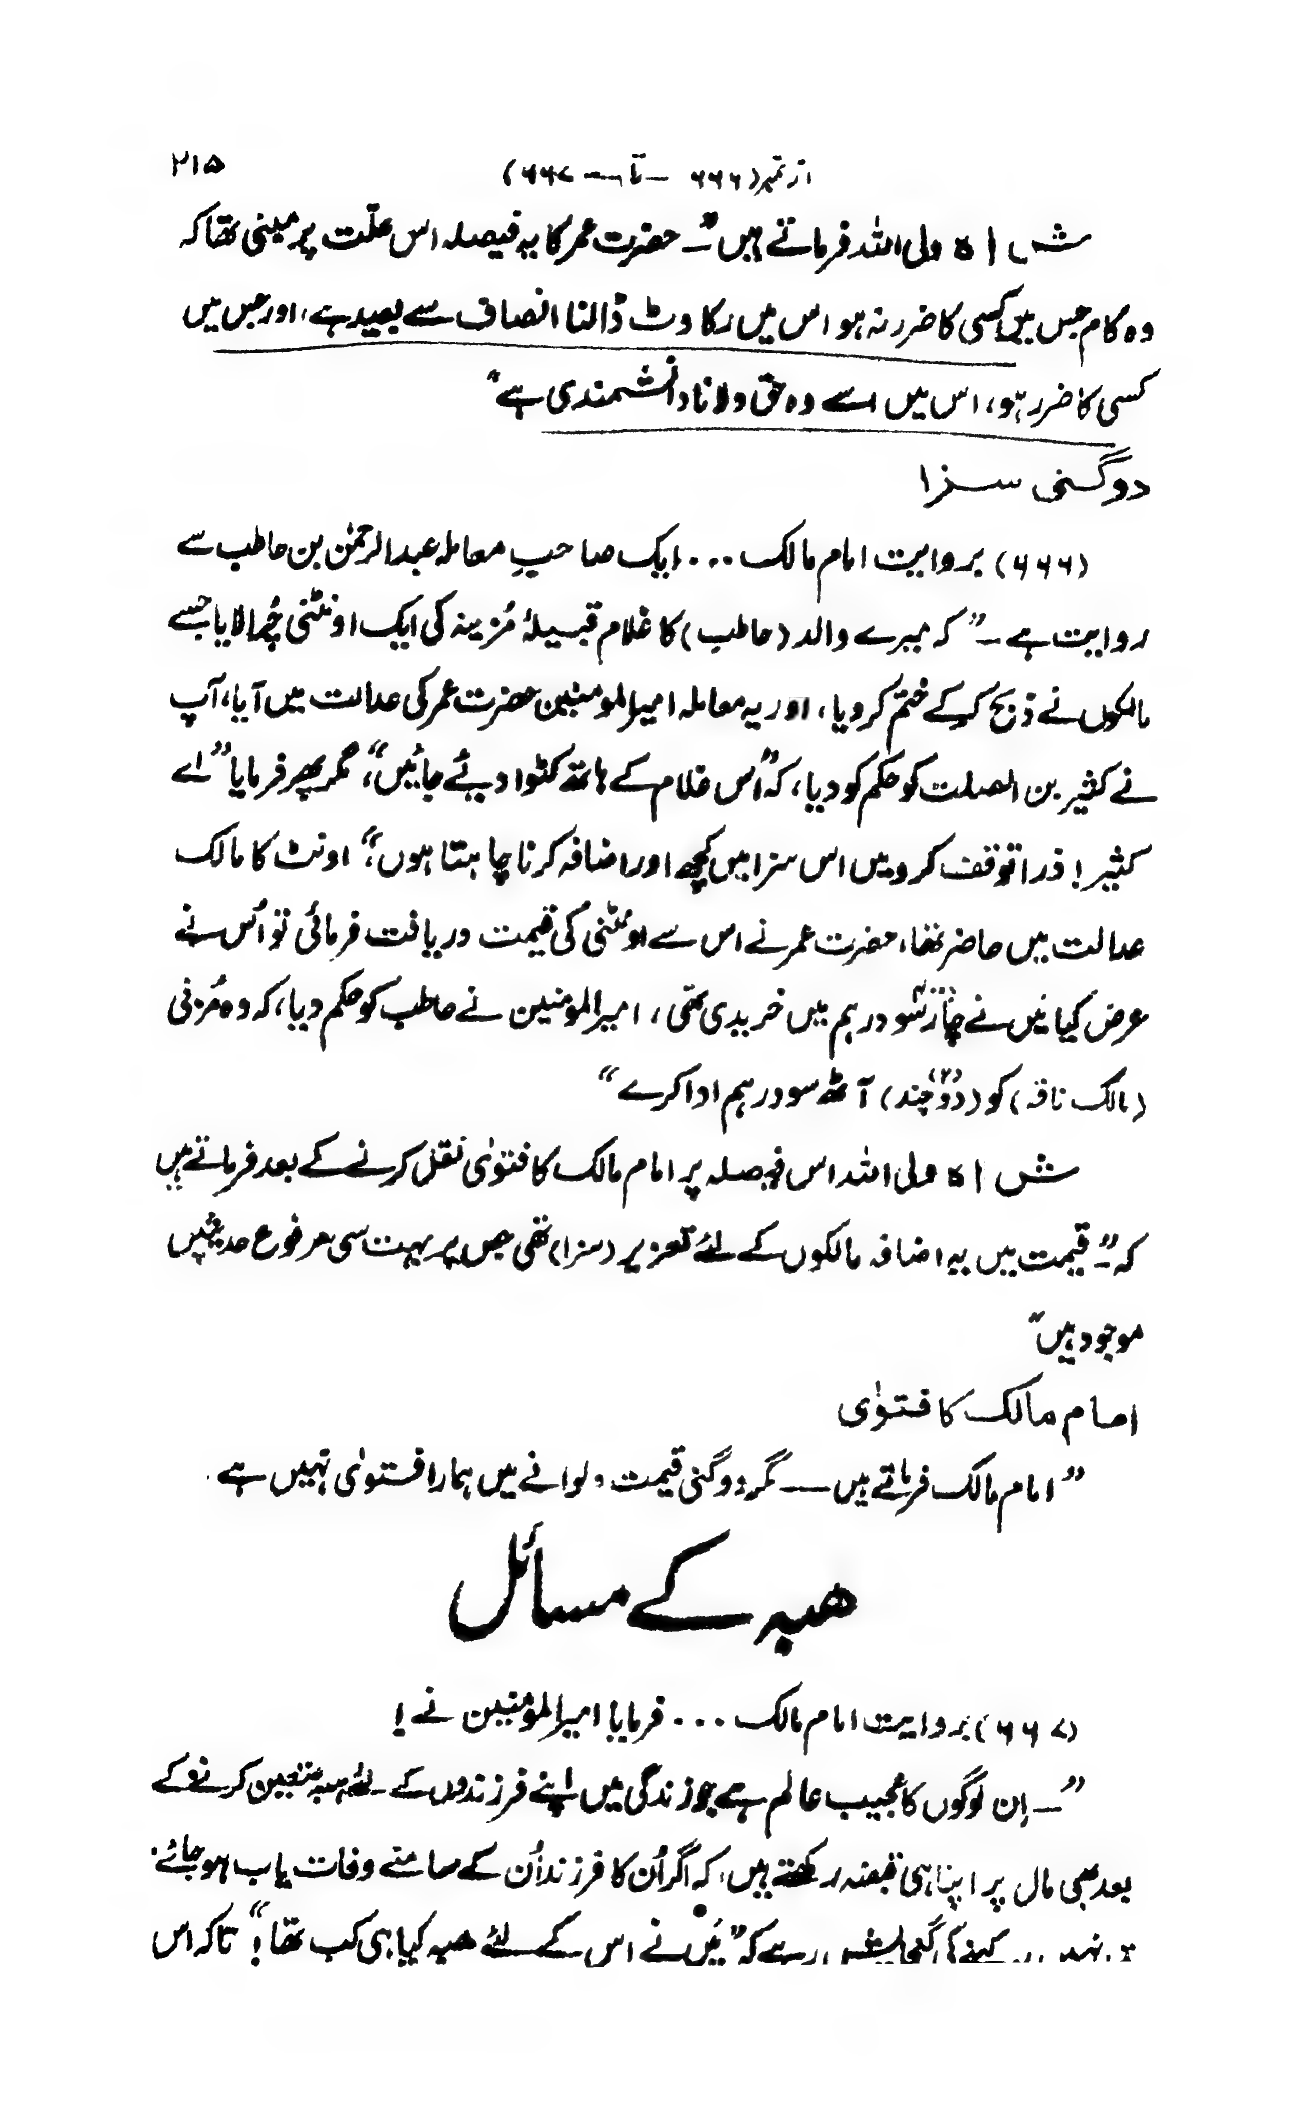 از نمبر (۶۶۶ — تا — ۶۶۷) ۲۱۵
شاہ ولی اللہ فرماتے ہیں "— حضرت عمر کا یہ فیصلہ اس علّت پر مبنی تھا کہ
وہ کام جس میں کسی کا ضرر نہ ہو اس میں رکاوٹ ڈالنا انصاف سے بعید ہے، اور جس میں
کسی کا ضرر ہو، اس میں اسے وہ حق دلانا دانشمندی ہے"
دوگنی سزا
(۶۶۶) بروایت امام مالک ... ایک صاحبِ معاملہ عبدالرحمٰن بن حاطب سے
روایت ہے —" کہ میرے والد (حاطب) کا غلام قبیلۂ مُزینہ کی ایک اونٹنی چُرا لایا جسے
مالکوں نے ذبح کر کے ختم کر دیا، اور یہ معاملہ امیرالمومنین حضرت عمر کی عدالت میں آیا، آپ
نے کثیر بن الصلت کو حکم کو دیا، کہ "اس غلام کے ہاتھ کٹوا دیئے جائیں"، مگر پھر فرمایا "اے
کثیر! ذرا توقف کرو میں اس سزا میں کچھ اور اضافہ کرنا چاہتا ہوں"، اونٹ کا مالک
عدالت میں حاضر تھا، حضرت عمر نے اس سے اونٹنی کی قیمت دریافت فرمائی تو اُس نے
عرض کیا میں نے چار سو درہم میں خریدی تھی، امیرالمومنین نے حاطب کو حکم دیا، کہ وہ مُزنی
(مالک ناقہ) کو (دو چند) آٹھ سو درہم ادا کرے"
شاہ ولی اللہ اس فیصلہ پر امام مالک کا فتویٰ نقل کرنے کے بعد فرماتے ہیں
کہ "— قیمت میں یہ اضافہ مالکوں کے لئے تعزیر (سزا) تھی جس پر بہت سی مرفوع حدیثیں
موجود ہیں"
امام مالک کا فتویٰ
"امام مالک فرماتے ہیں — مگر دوگنی قیمت دلوانے میں ہمارا فتویٰ نہیں ہے۔
ھبہ کے مسائل
(۶۶۷) بروایت امام مالک ... فرمایا امیرالمومنین نے!
"— اِن لوگوں کا عجیب عالم ہے جو زندگی میں اپنے فرزندوں کے لئے ہبہ متعین کرنے کے
بعد بھی مال پر اپنا ہی قبضہ رکھتے ہیں، کہ اگر اُن کا فرزند اُن کے سامنے وفات یاب ہو جائے۔
کہنے کی گنجائش رہے کہ "میں نے اس کے لئے ھبہ کیا ہی کب تھا!" تاکہ اس